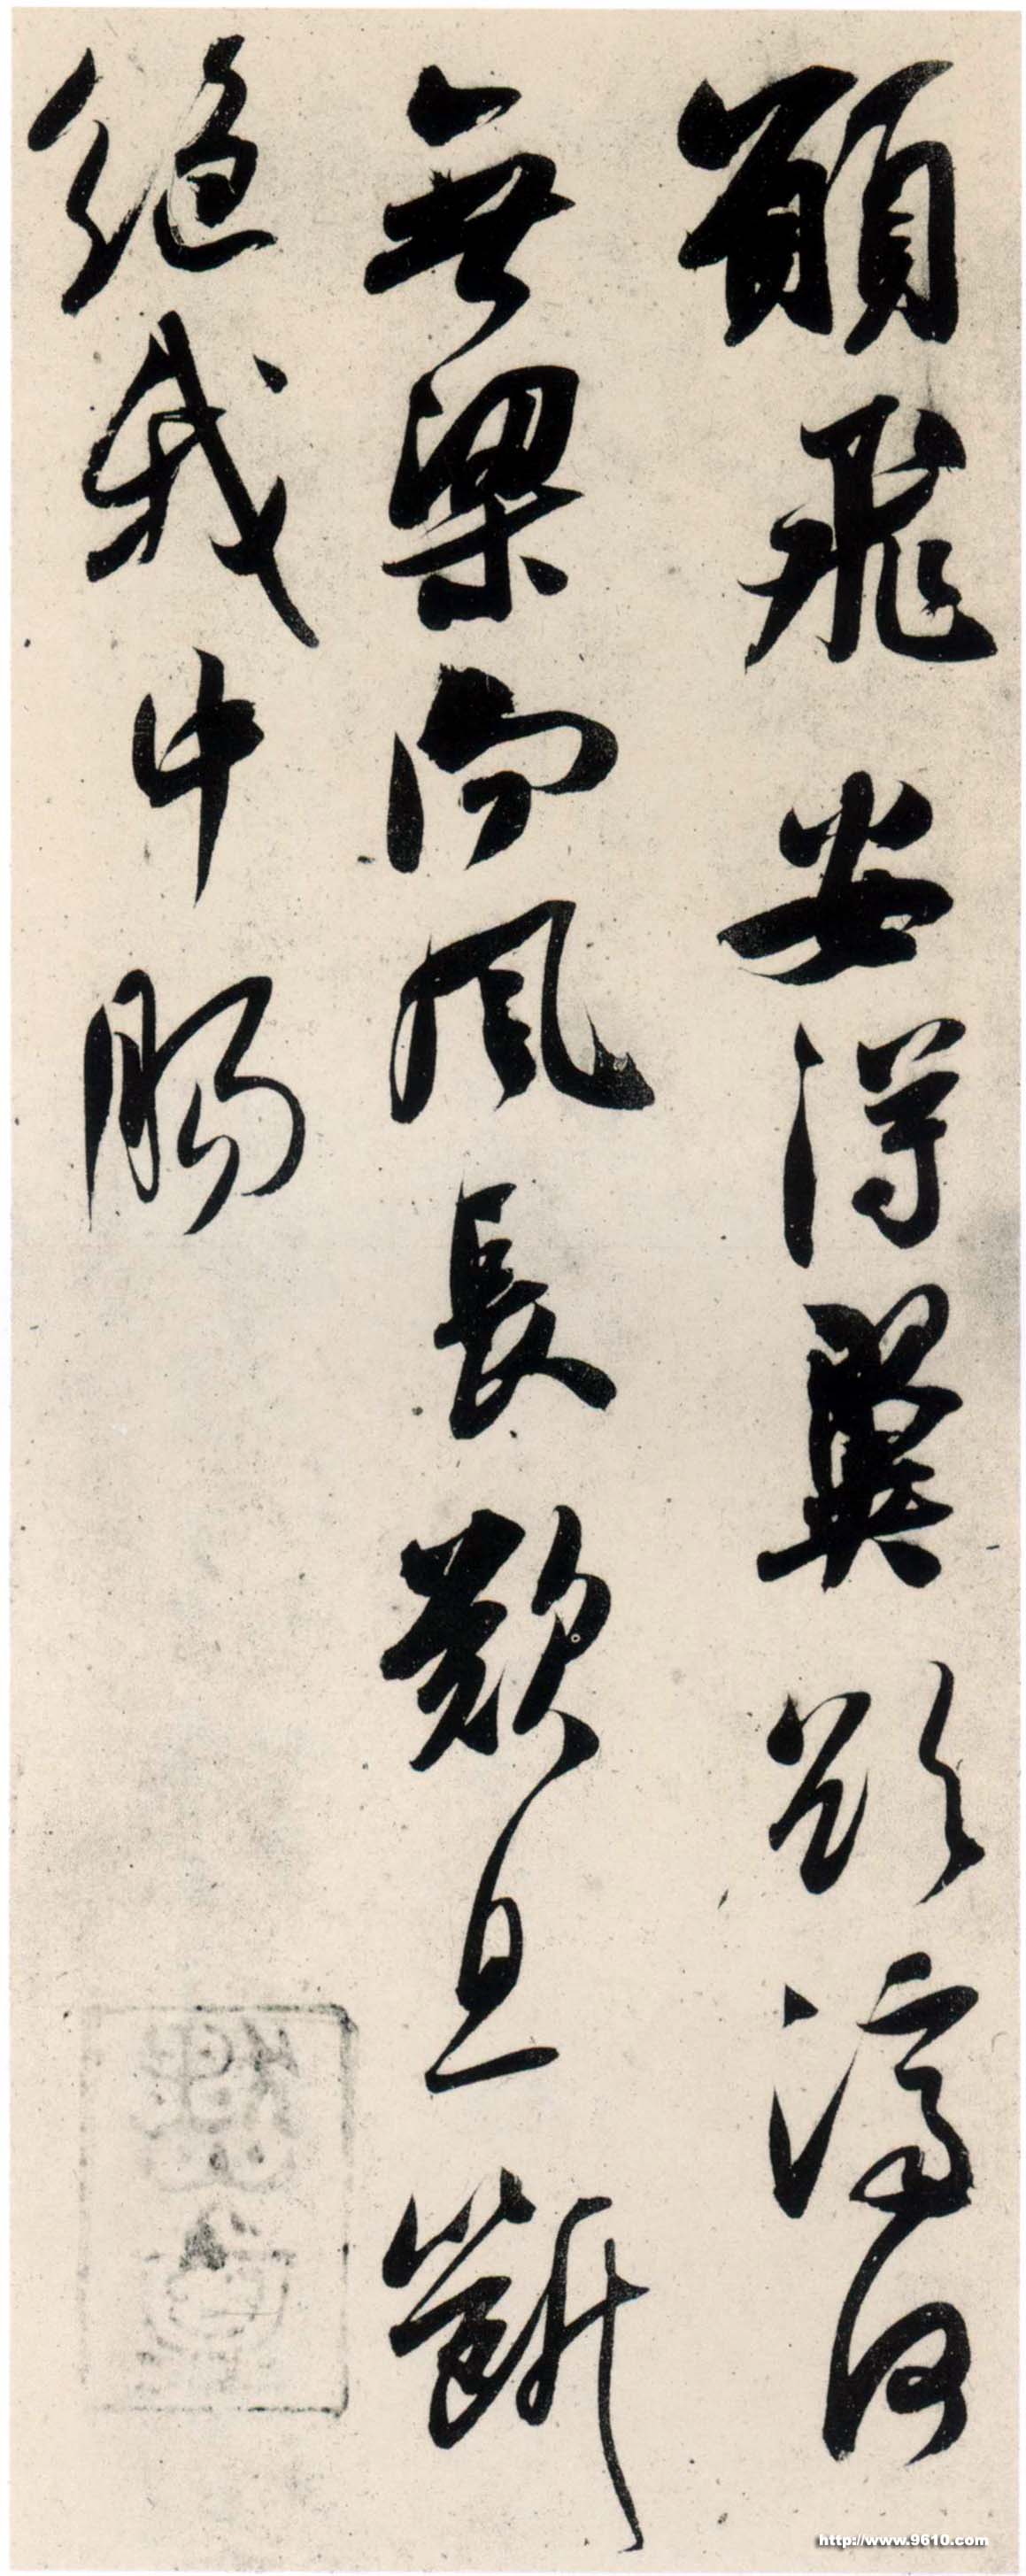 願飛安得翼欲濟河
無梁向風長歎息斷
絕我中腸
http://www.9610.com